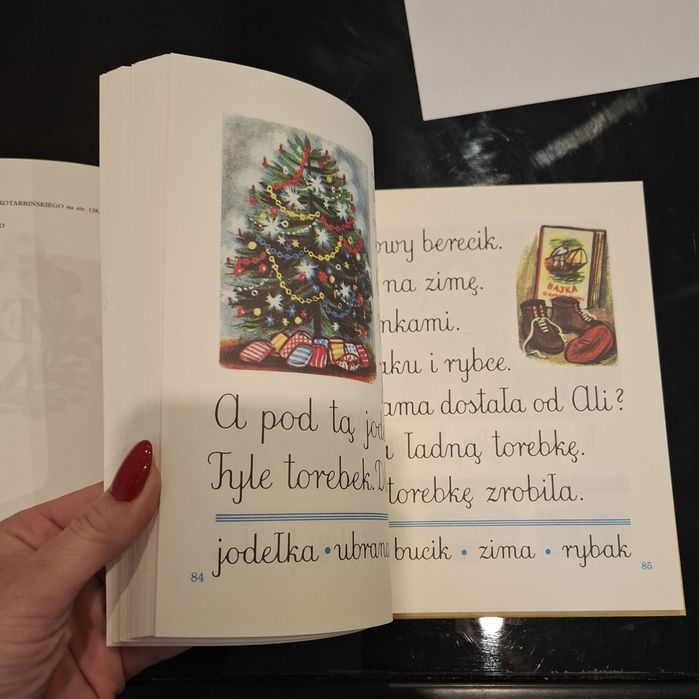 KOTARBIŃSKIEGO na str. 138,
A pod tą
Tyle torebek.
jodełka • ubrana
84
berecik.
na zimę.
i rybce.
dostała od Ali?
ładną torebkę.
torebkę zrobiła.
bucik • zima • rybak
85
BAJKA